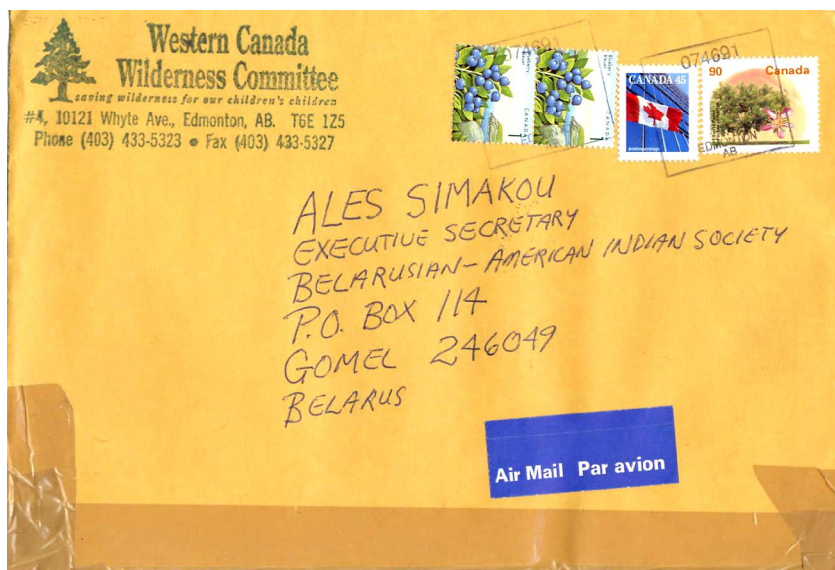 Western Canada
Wilderness Committee
saving wilderness for our children's children
#4, 10121 Whyte Ave., Edmonton, AB. T6E 1Z5
Phone (403) 433-5323 • Fax (403) 433-5327
074691
074691
Blueberry
Bleuet
CANADA
1
Blueberry
Bleuet
CANADA
1
CANADA 45
postes-postage
90 Canada
EDMONTON
AB
ALES SIMAKOU
EXECUTIVE SECRETARY
BELARUSIAN-AMERICAN INDIAN SOCIETY
P.O. BOX 114
GOMEL 246049
BELARUS
Air Mail Par avion